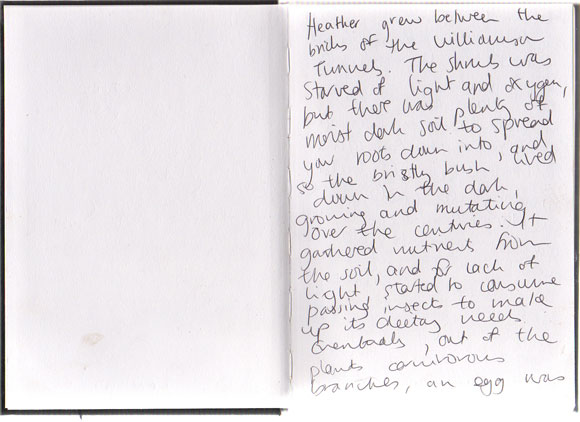 Heather grew between the
bricks of the Williamson
Tunnels. The shrub was
starved of light and oxygen,
but there was plenty of
moist dark soil to spread
your roots down into, and
so the bristly bush lived
down in the dark,
growing and mutating
over the centuries. It
gathered nutrients from
the soil, and for lack of
light started to consume
passing insects to make
up its dietary needs.
Eventually, out of the
plants carnivorous
branches, an egg was